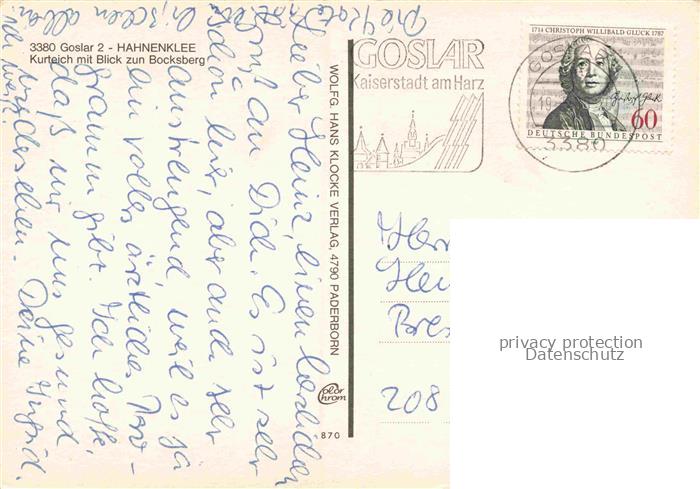 3380 Goslar 2 - HAHNENKLEE
Kurteich mit Blick zum Bocksberg
Lieber Heinz, einen herzlichen
Gruß an Dich. Es ist sehr
schön hier, aber auch sehr
anstrengend, weil es ja
ein volles ärztliches Pro-
gramm gibt. Ich hoffe,
daß wir uns gesund
wiedersehen. Deine Ingrid.
WOLFG. HANS KLOCKE VERLAG, 4790 PADERBORN
Color
Chrom
870
GOSLAR
Kaiserstadt am Harz
GOSLAR
3380
1714 CHRISTOPH WILLIBALD GLUCK 1787
60
DEUTSCHE BUNDESPOST
Herr
Hei
Bre
208
privacy protection
Datenschutz